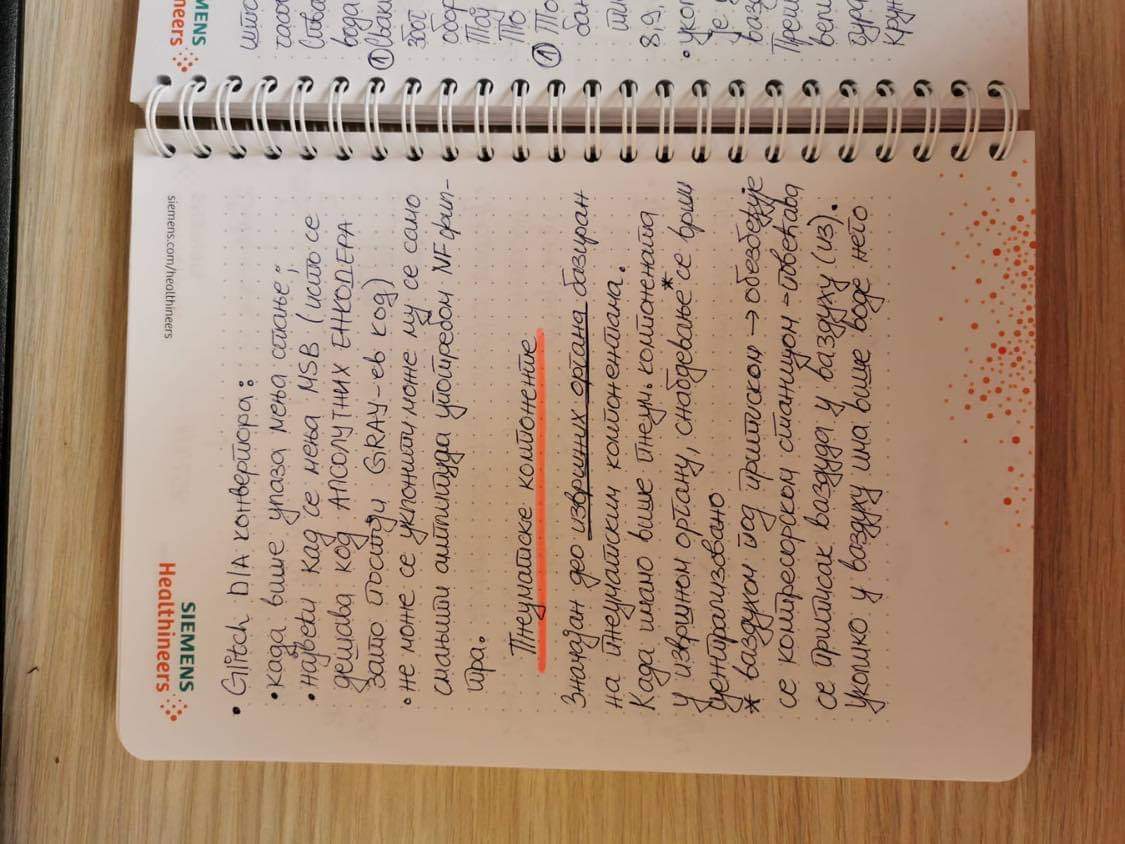 SIEMENS
Healthineers
siemens.com/healthineers
• Glitch D/A конвертора:
• када више улаза мења стање,
• највећи кад се мења MSB (исто се
дешава код АПСОЛУТНИХ ЕНКОДЕРА
зато постоји GRAY-ев код)
• не може се уклонити може му се само
смањити амплитуда употребом NF фил-
тра.
Пнеуматске компоненте
Значајан део извршних органа базиран
на пнеуматским компонентама.
Када имамо више пнеум. компоненаta
у извршном органу, снабдевање* се врши
централизовано
* ваздухом под притиском → обезбеђује
се компресорском станицом - повећава
се притисак ваздуда у ваздуху (из).
Уколико у ваздуху има више воде него
SIEMENS
што
вода
Сваки
збој
Тај
То
① То
бан
ти
8,9,
• уко
је
вазд
Пре
вели
кру